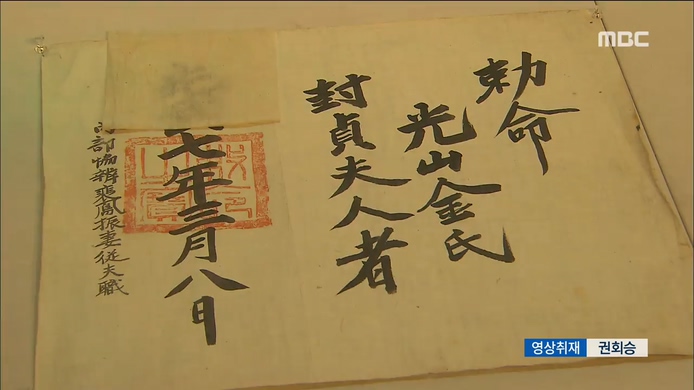 MBC
勅命
光山金氏
封貞夫人者
七年三月八日
部協辦裵鳳振妻從夫職
영상취재 권회승